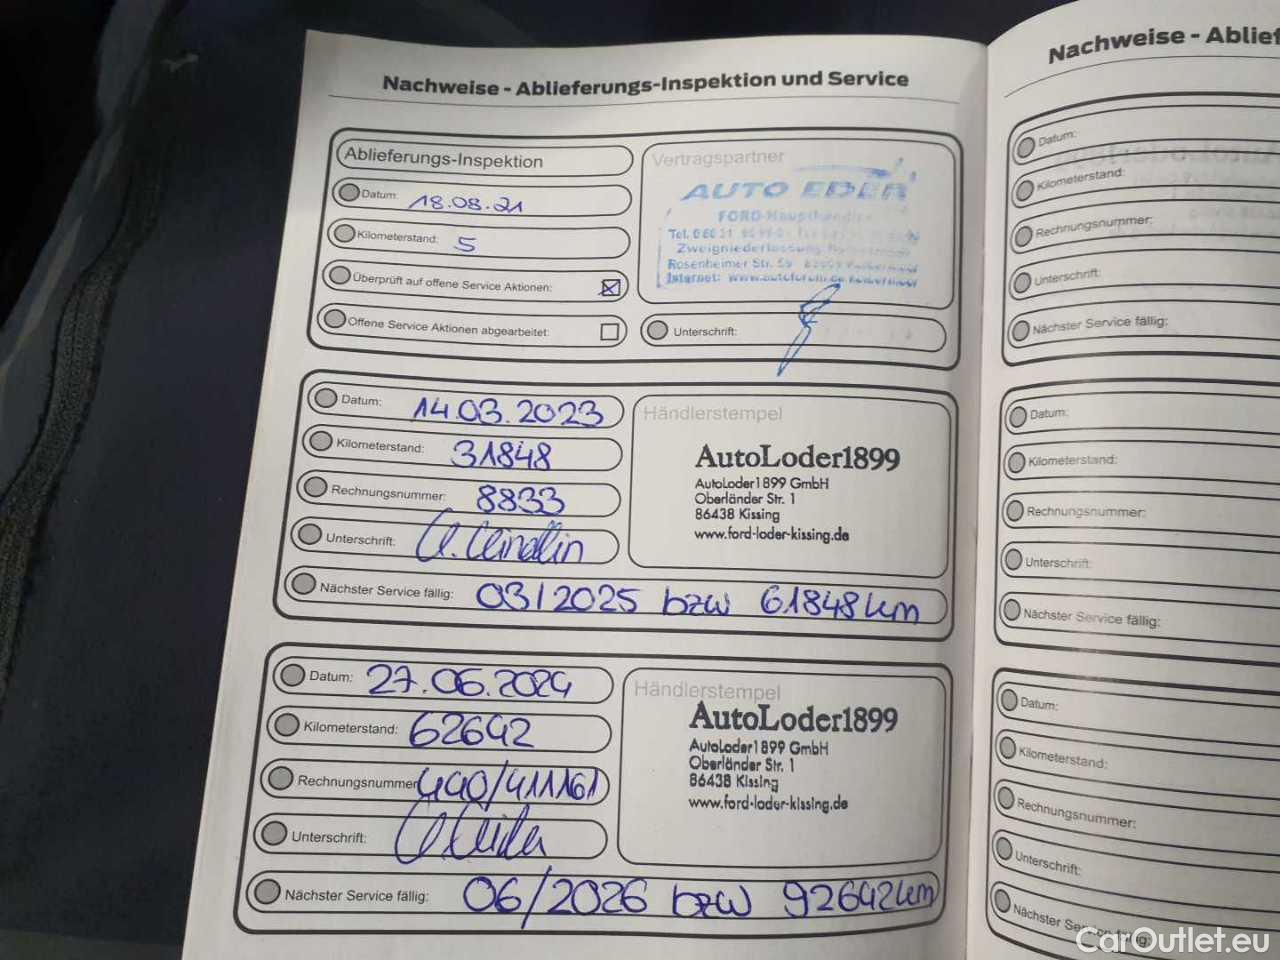 Nachweise - Ablieferungs-Inspektion und Service
Ablieferungs-Inspektion
Datum: 18.08.21
Kilometerstand: 5
Überprüft auf offene Service Aktionen:
Offene Service Aktionen abgearbeitet:
Vertragspartner
AUTO EDER
FORD-Haupthändler
Zweigniederlassung
Rosenheimer Str. 59
Internet: www.autoforum.de
Unterschrift:
Datum: 14.03.2023
Kilometerstand: 31848
Rechnungsnummer: 8833
Unterschrift:
Nächster Service fällig: 03/2025 bzw 61848 km
Händlerstempel
AutoLoder1899
AutoLoder1899 GmbH
Oberländer Str. 1
86438 Kissing
www.ford-loder-kissing.de
Datum: 27.06.2024
Kilometerstand: 62642
Rechnungsnummer 440/411161
Unterschrift:
Nächster Service fällig: 06/2026 bzw 92642 km
Händlerstempel
AutoLoder1899
AutoLoder1899 GmbH
Oberländer Str. 1
86438 Kissing
www.ford-loder-kissing.de
Nachweise - Ablief
Datum:
Kilometerstand:
Rechnungsnummer:
Unterschrift:
Nächster Service fällig:
Datum:
Kilometerstand:
Rechnungsnummer:
Unterschrift:
Nächster Service fällig:
Datum:
Kilometerstand:
Rechnungsnummer:
Unterschrift:
Nächster Service fällig:
CarOutlet.eu